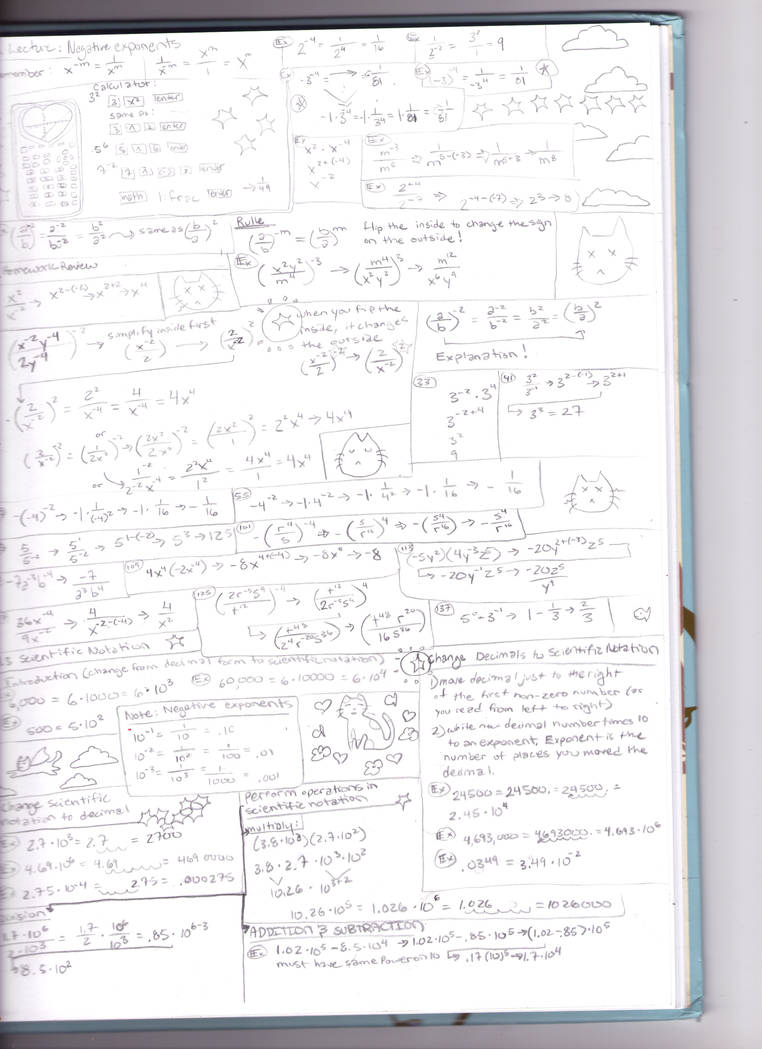 Lecture: Negative exponents
member: x^-m = 1/x^m   1/x^-m = x^m/1 = x^m
Ex 2^-4 = 1/2^4 = 1/16
Ex 1/3^-2 = 3^2/1 = 9
Calculator:
3^2 3 x^2 enter
same as:
3 ^ 2 enter
5^6 5 ^ 6 enter
7^-2
math 1:frac enter → 1/49
Ex (-3)^-4 = 1/-3^4 = 1/81
-1·3^-4 = -1·1/3^4 = 1·1/81 = -1/81
Ex x^2·x^-4
x^2+(-4)
x^-2
Ex m^-3/m^5 → 1/m^5-(-3) → 1/m^5+3 → 1/m^8
(a/b)^-2 = a^-2/b^-2 = b^2/a^2 → same as (b/a)^2
Rulle
(a/b)^-m = (b/a)^m flip the inside to change the sgn
on the outside!
Ex (x^2y^2/m^4)^-3 → (m^4/x^2y^2)^3 → m^12/x^6y^6
Homework Review
x^2/x^-2 → x^2-(-2) → x^2+2 → x^4
(x^-2y^-4/2y^-4)^-2 → simplify inside first (x^-2/2)^-2 → (2/x^-2)^2
when you flip the
inside, it changes
the outside
(x^-2/2)^-2 → (2/x^-2)^2
(a/b)^-2 = a^-2/b^-2 = b^2/a^2 = (b/a)^2
Explanation!
(2/x^-2)^2 = 2^2/x^-4 = 4/x^-4 = 4x^4
or (1/2x^2)^-2 → (2x^2/1)^2 = 2^2x^4 → 4x^4
or 1^-2/2^-2x^-4 = 2^2x^4/1^2 = 4x^4/1 = 4x^4
33
3^-2·3^4
3^-2+4
3^2
9
41 3^2/3^-1 → 3^2-(-1) → 3^2+1
→ 3^3 = 27
-(-4)^-2 → -1·1/(-4)^2 → -1·1/16 → -1/16
55 -4^-2 → -1·4^-2 → -1·1/4^2 → -1·1/16 → -1/16
5/5^-2 → 5^1/5^-2 → 5^1-(-2) → 5^3 → 125
101 -(r^4/s)^-4 → -(s/r^4)^4 → -(s^4/r^16) → -s^4/r^16
-7a^-3b^-4 → -7/a^3b^4
109 4x^4(-2x^-4) → -8x^4+(-4) → -8x^0 → -8
113 (-5y^2)(4y^-3z^5) → -20y^2+(-3)z^5
→ -20y^-1z^5 → -20z^5/y
36x^-4/9x^-2 → 4/x^-2-(-4) → 4/x^2
125 (2r^-5s^9/t^12)^-4 → (t^12/2r^-5s^9)^4
→ (t^48/2^4r^-20s^36) → (t^48r^20/16s^36)
137 5^0-3^-1 → 1-1/3 → 2/3
Scientific Notation
Introduction (change from decimal form to scientific notation)
6,000 = 6·1000 = 6·10^3 Ex 60,000 = 6·10000 = 6·10^4
Ex 500 = 5·10^2
Note: Negative exponents
10^-1 = 1/10 = .10
10^-2 = 1/10^2 = 1/100 = .01
10^-3 = 1/10^3 = 1/1000 = .001
Change Decimals to Scientific Notation
1) move decimal just to the right
of the first non-zero number (as
you read from left to right)
2) write new decimal number times 10
to an exponent. Exponent is the
number of places you moved the
decimal.
Ex 24500 = 24500. = 24500. =
2.45·10^4
Ex 4,693,000 = 4693000. = 4.693·10^6
Ex .0349 = 3.49·10^-2
Change Scientific
notation to decimal
Ex 2.7·10^3 = 2.7 = 2700
Ex 4.69·10^6 = 4.69 = 4690000
Ex 2.75·10^-4 = 2.75 = .000275
Perform operations in
scientific notation
multiply:
(3.8·10^3)(2.7·10^2)
3.8·2.7·10^3·10^2
10.26·10^3+2
10.26·10^5 = 1.026·10^6 = 1.026 = 1026000
1.7·10^6/2·10^3 = 1.7/2·10^6/10^3 = .85·10^6-3
→ 8.5·10^2
ADDITION & SUBTRACTION
Ex 1.02·10^5 - 8.5·10^4 → 1.02·10^5 - .85·10^5 → (1.02-.85)·10^5
must have same power on 10 → .17(10)^5 → 1.7·10^4